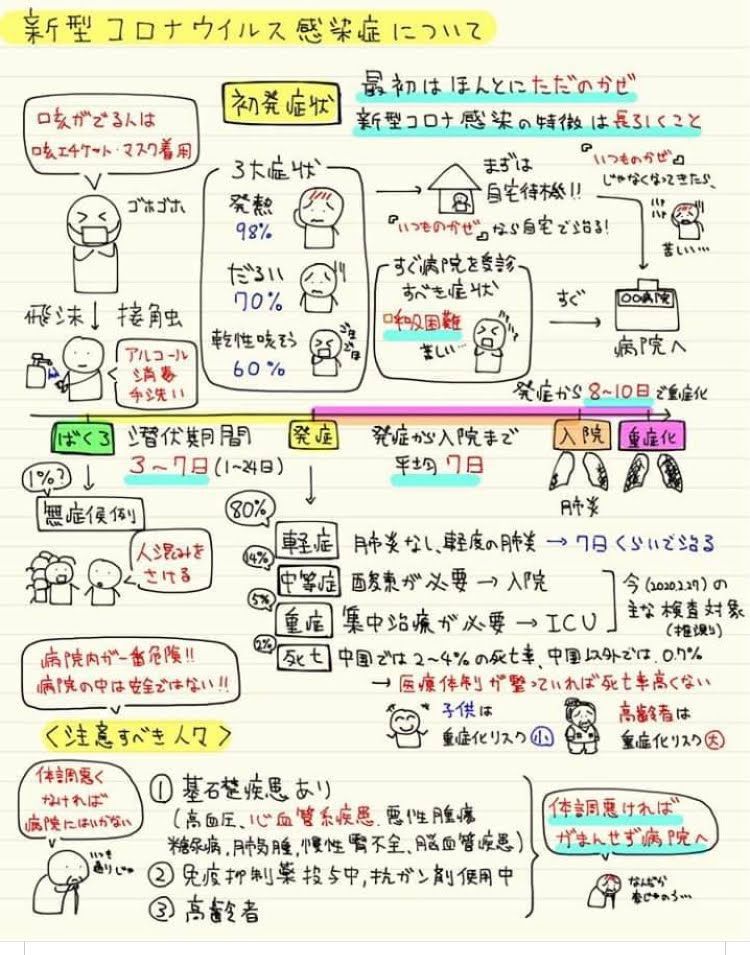 新型コロナウイルス感染症について
初発症状
最初はほんとにただのかぜ
新型コロナ感染の特徴は長引くこと
咳がでる人は
咳エチケット・マスク着用
ゴホゴホ、
飛沫
接触
アルコール
消毒
手洗い
3大症状
発熱
98%
だるい
70%
乾性咳そう
60%
ゴホゴホ
まずは
自宅待機!!
『いつものかぜ』なら自宅で治る!
『いつものかぜ』
じゃなくなってきたら、
苦しい…
すぐ病院を受診
すべき症状
呼吸困難
苦しい…
すぐ
〇〇病院
病院へ
発症から8~10日で重症化
ばくろ
潜伏期間
3~7日(1~24日)
発症
発症から入院まで
平均7日
入院
重症化
肺炎
1%?
無症候例
人混みを
さける
80%
軽症 肺炎なし、軽度の肺炎→7日くらいで治る
14%
中等症 酸素が必要→入院
5%
重症 集中治療が必要→ICU
今(2020.2.27)の
主な検査対象
(推測り)
2%
死亡 中国では2~4%の死亡率、中国以外では0.7%
→医療体制が整っていれば死亡率高くない
病院内が一番危険!!
病院の中は安全ではない!!
子供は
重症化リスク小
高齢者は
重症化リスク大
<注意すべき人々>
体調悪く
なければ
病院にはいかない
いつも
通りじゃ
① 基礎疾患あり
(高血圧、心血管系疾患、悪性腫瘍
糖尿病、肺気腫、慢性腎不全、脳血管疾患)
② 免疫抑制薬投与中、抗ガン剤使用中
③ 高齢者
体調悪ければ
がまんせず病院へ
なんだか